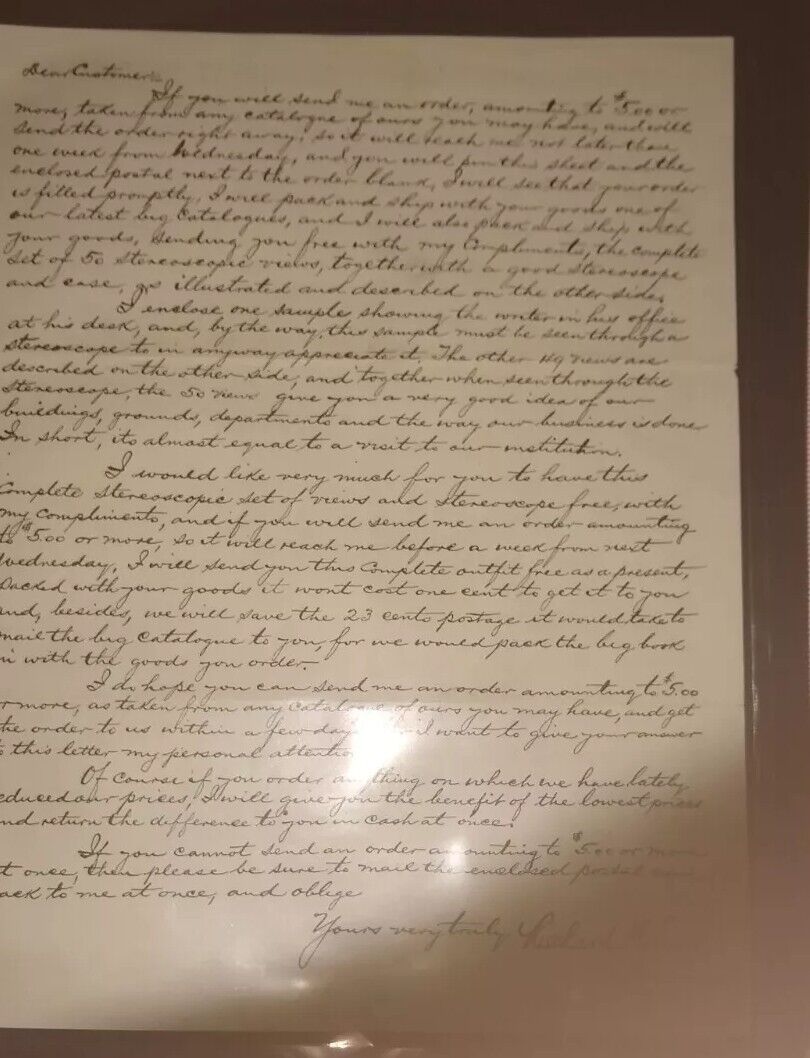 Dear Customer:
If you will send me an order, amounting to $5.00 or
more, taken from any catalogue of ours you may have, and will
send the order right away, so it will reach me not later than
one week from Wednesday, and you will pin this sheet and the
enclosed postal next to the order blank, I will see that your order
is filled promptly, I will pack and ship with your goods one of
our latest big Catalogues, and I will also pack and ship with
your goods, sending you free with my Compliments, the complete
set of 50 stereoscopic views, together with a good stereoscope
and case, as illustrated and described on the other side.
I enclose one sample showing the writer in his office
at his desk, and, by the way, this sample must be seen through a
stereoscope to in anyway appreciate it. The other 49 views are
described on the other side, and together when seen through the
stereoscope, the 50 views give you a very good idea of our
buildings, grounds, departments and the way our business is done
In short, its almost equal to a visit to our institution.
I would like very much for you to have this
Complete Stereoscopic set of views and Stereoscope free, with
my Compliments, and if you will send me an order amounting
to $5.00 or more, so it will reach me before a week from next
Wednesday, I will send you this Complete outfit free as a present,
Packed with your goods it wont cost one cent to get it to you
and, besides, we will save the 23 cents postage it would take to
mail the big Catalogue to you, for we would pack the big book
in with the goods you order.
I do hope you can send me an order amounting to $5.00
r more, as taken from any Catalogue of ours you may have, and get
the order to us within a few day I want to give your answer
to this letter my personal attention
Of course if you order anything on which we have lately
educed our prices, I will give you the benefit of the lowest prices
nd return the difference to you in cash at once.
If you cannot send an order amounting to $5.00 or more
t once, then please be sure to mail the enclosed postal
ack to me at once, and oblige
Yours very truly Richard